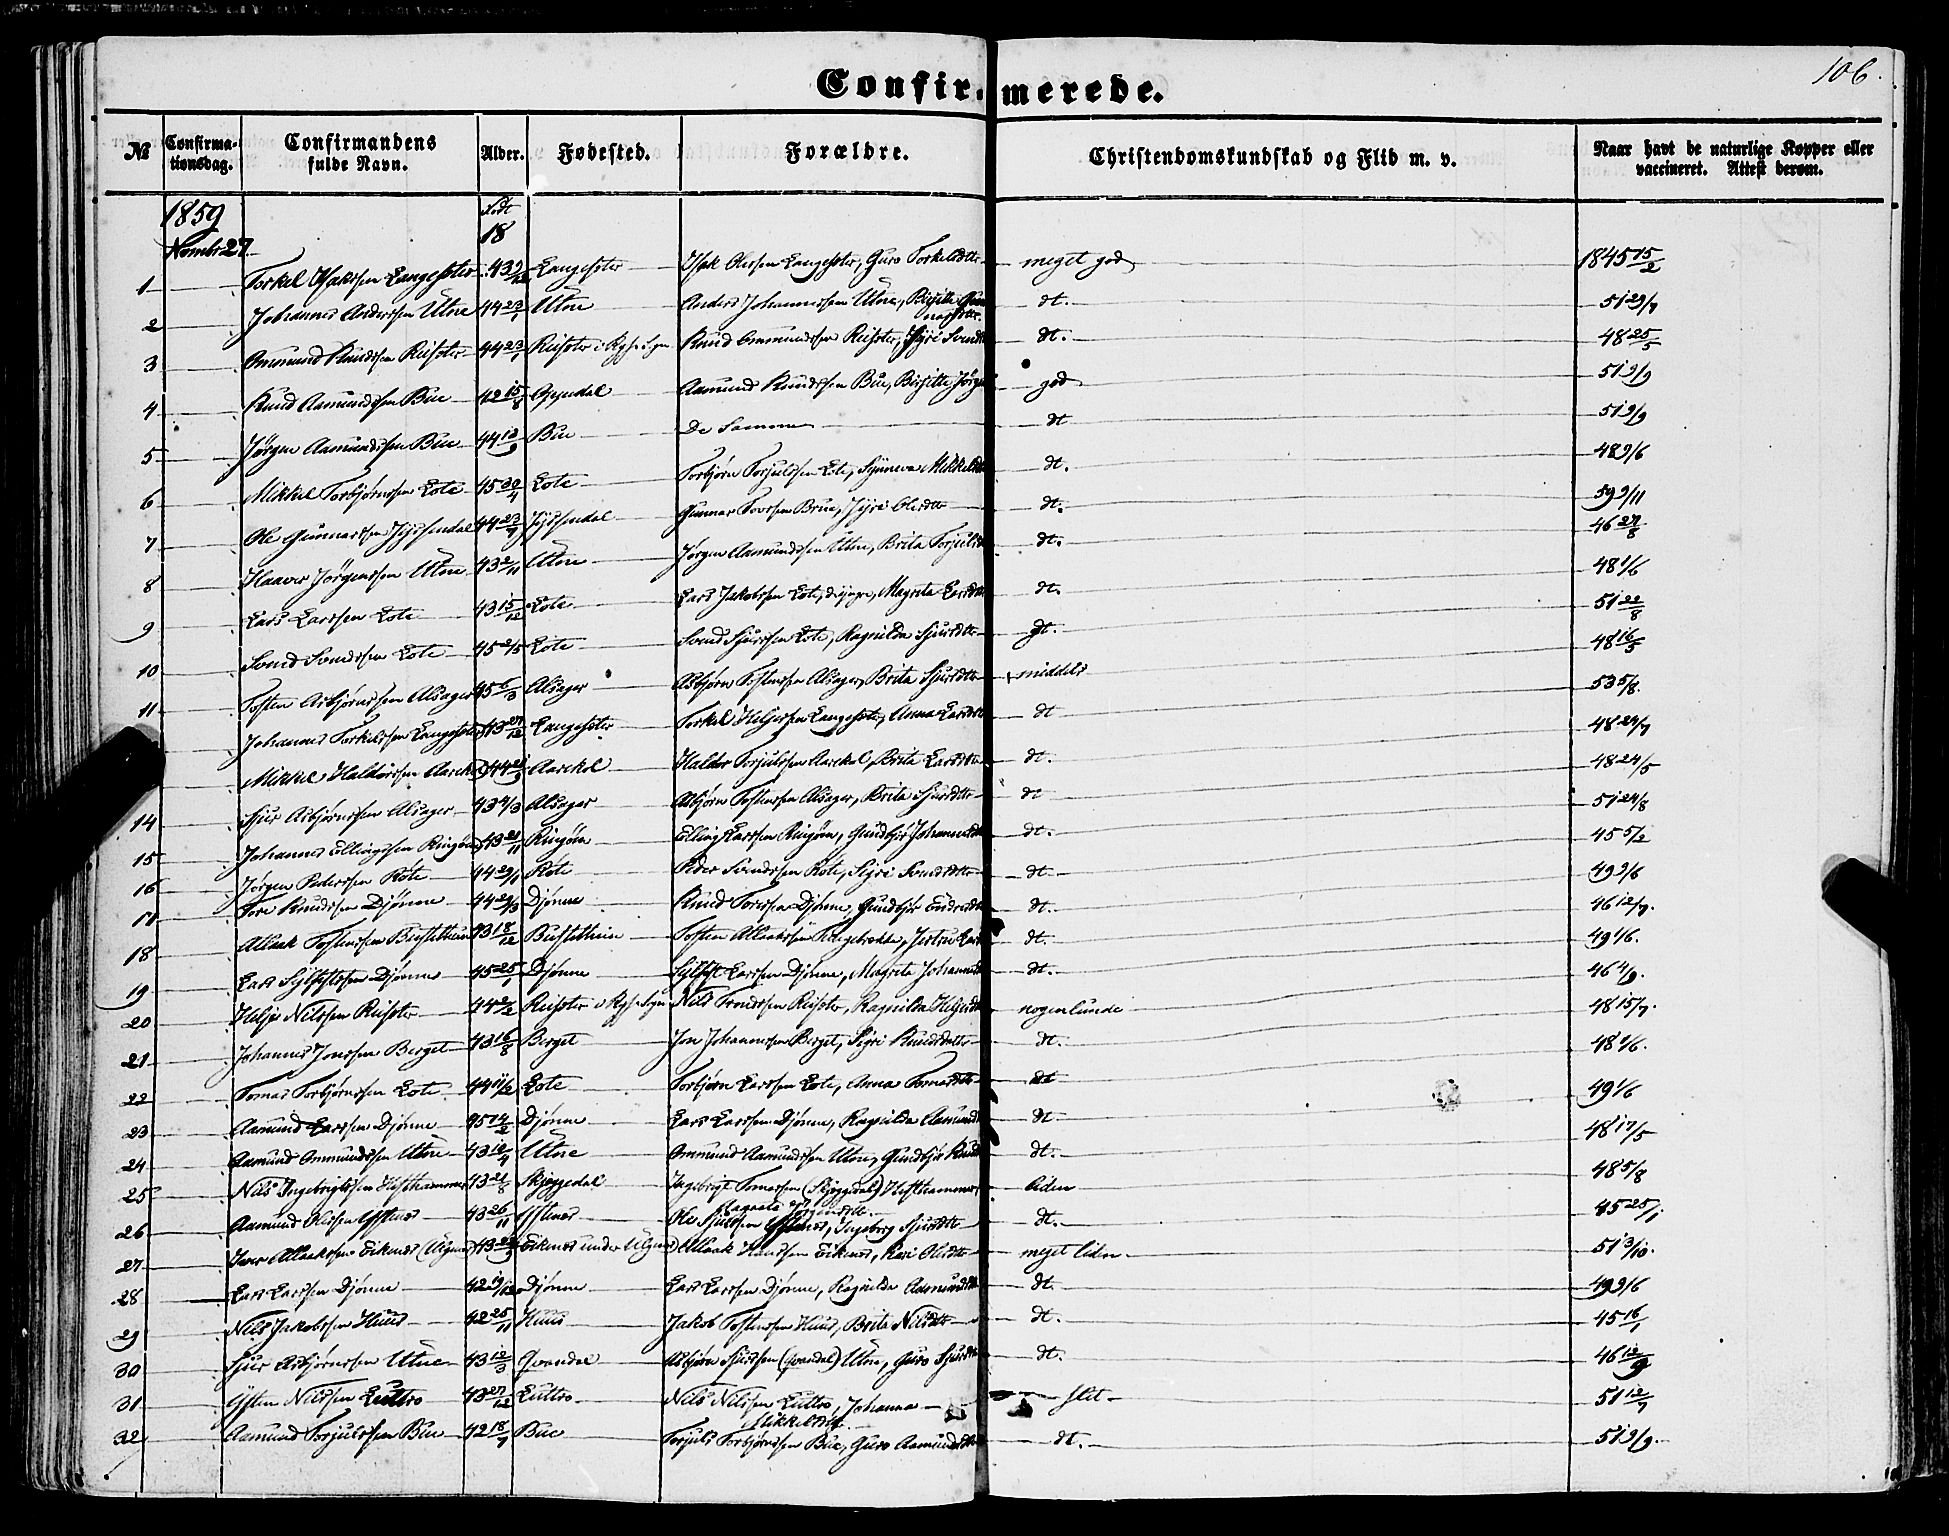 106.
Confirmerede.
№ Confirmationsdag. Confirmandens fulde Navn. Alder. Fødested. Forældre. Christendomskundskab og Flid m. v. Naar havt de naturlige Kopper eller vaccineret. Attest derom.
1859 Født
Novmbr 27 18
1 Torkel Isakssen Langesæter 43 9/12 Langesæter Isak Olessen Langesæter, Guro Torkelsdtr meget god 1845 15/2
2 Johannes Anderssen Utne 44 23/1 Utne Anders Johannessen Utne, Birgitte Gunnarsdtr dt. 51 29/7
3 Ommund Knudssen Reisæter 44 23/1 Reisæter i Kgs. Sgn Knud Ommundssen Reisæter, Sigri Svendsdtr dt. 48 25/5
4 Knud Aamundssen Bue 42 15/8 Opedal Aamund Knudssen Bue, Birgitte Jørgensd god 51 9/9
5 Jørgen Aamundssen Bue 44 12/9 Bue De Samme dt 51 9/9
6 Mikkel Torbjørnssen Lote 45 30/4 Lote Torbjørn Torjulssen Lote, Synneva Mikkelsdtr dt. 48 9/6
7 Ole Gunnarssen Jøssendal 44 23/7 Jøssendal Gunnar Tovssen Brue, Sigri Olesdtr dt. 59 9/11
8 Haaver Jørgenssen Utne 43 2/11 Utne Jørgen Aamundssen Utne, Brita Torjulsd dt. 46 27/8
9 Lars Larssen Lote 43 15/12 Lote Lars Jakobssen Lote, d. yngre, Magrita Larsdtr dt. 48 1/6
10 Svend Svendssen Lote 45 2/5 Lote Svend Sjurssen Lote, Ragnilda Sjursdtr dt. 51 22/8
11 Tosten Asbjørnssen Alsager 45 6/3 Alsager Asbjørn Tostenssen Alsager, Brita Sjursdtr middels 48 16/5
Johannes Torkelssen Langesæter 43 27/12 Langesæter Torkel Helgessen Langesæter, Anna Larsdtr dt 53 5/8.
Mikkel Haldorssen Aarekol 44 Aarekol Haldor Torjulssen Aarekol, Brita Larsdtr dt. 48 24/7
14 Sjur Asbjørnssen Alsager 43 4/3 Alsager Asbjørn Tostenssen Alsager, Brita Sjursdtr dt 48 24/5
15 Johannes Ellingssen Ringøen 43 21/11 Ringøen Elling Larssen Ringøen, Gundbjør Johannesdtr dt. 51 24/8
16 Jørgen Pederssen Kote 44 29/1 Kote Peder Svendssen Kote, Sigri Svendsdtr dt 45 5/2
17 Tore Knudssen Djønne 44 29/3 Djønne Knud Toressen Djønne, Gundbjør Endresdtr dt. 49 9/6
18 Allaak Tostenssen Bustetun 43 18/12 Bustetun Tosten Allaakssen, Jertru Larsd dt. 46 12/7.
19 Lars Sylfestssen Djønne 45 25/1 Djønne Sylfest Larssen Djønne, Magrita Johannesd dt. 49 1/6.
20 Helje Nilssen Reisæter 44 2/2 Reisæter i Kgs. Sgn Nils Trondssen Reisæter, Ragnilda Helgesdtr nogenlunde 46 4/9.
21 Johannes Jonssen Berget 43 16/8 Berget Jon Johannessen Berget, Sigri Knudsdtr dt. 48 15/7.
22 Tomas Torbjørnssen Lote 44 11/2 Lote Torbjørn Larssen Lote, Anna Tomasdtr dt 48 1/6.
23 Aamund Larssen Djønne 45 14/2 Djønne Lars Larssen Djønne, Ragnilda Aamundsd dt 49 1/6
24 Aamund Ommundssen Utne 43 10/4 Utne Ommund Aamundssen Utne, Gundbjør Knudsd dt. 48 17/5
25 Nils Ingebrigtssen Hesthammer 43 21/8 Skjeggedal Ingebrigt Tomassen (Skjeggedal) Hesthammer, Magnela Jørgensdtr liden 48 5/8
26 Aamund Olessen Ystenes 43 26/11 Ystenes Ole Sjurssen Ystenes, Ingeborg Sjursdtr dt. 45 25/1
27 Iver Allaakssen Eikenes (Utgnes) 43 Eikenes under Utgnes Allaak Hanssen Eikenes, Kari Olesdtr meget liden 51 3/10.
28 Lars Larssen Djønne 42 19/12 Djønne Lars Larssen Djønne, Ragnilda Aamundsdtr dt. 49 9/6
29 Nils Jakobssen Huus 42 25/11 Huus Jakob Tostenssen Huus, Brita Nilsdtr dt. 45 16/1
30 Sjur Asbjørnssen Utne 43 12/3 Qvandal Asbjørn Sjurssen (Qvandal) Utne, Guro Sjursdtr dt. 46 12/9
31 Østen Nilssen Luttro 43 27/12 Luttro Nils Nilssen Luttro, Johanna Mikkelsdtr slet 51 12/7
32 Aamund Torjulssen Bue 42 18/7 Bue Torjuls Torbjørnssen Bue, Guro Aamundsdtr dt. 51 9/9.